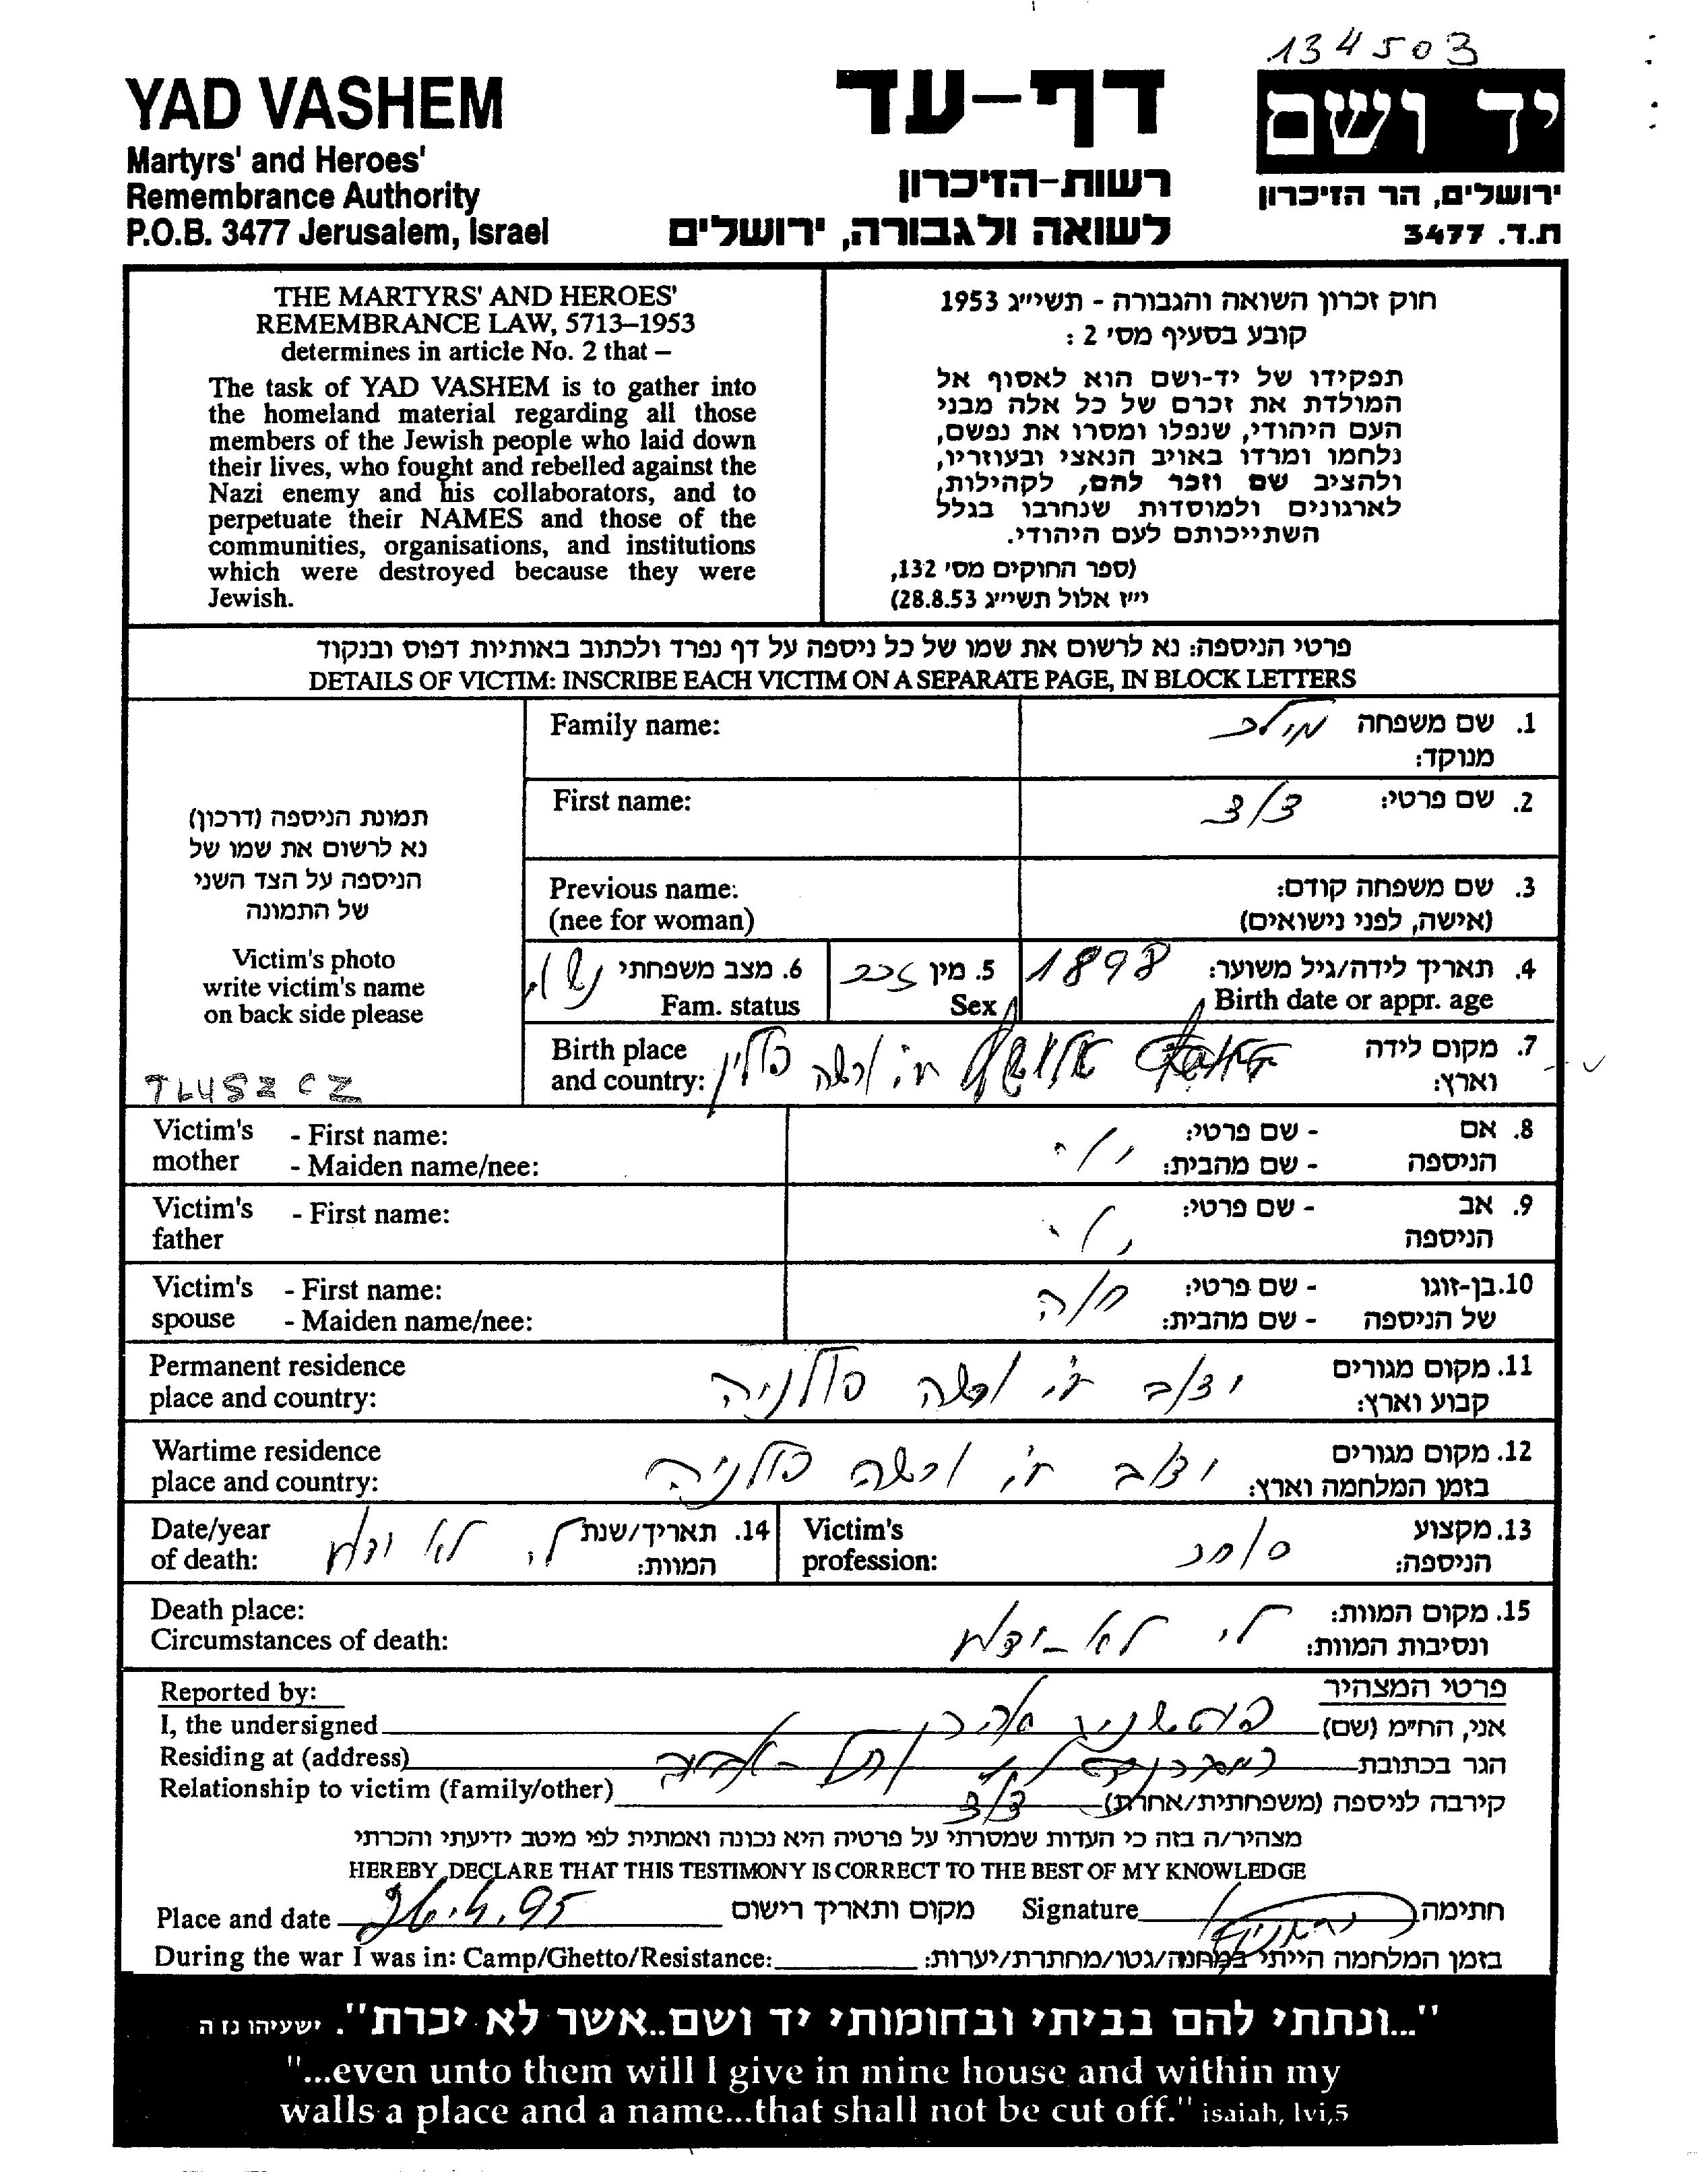 134503
YAD VASHEM
Martyrs' and Heroes'
Remembrance Authority
P.O.B. 3477 Jerusalem, Israel
דף-עד
רשות-הזיכרון
לשואה ולגבורה, ירושלים
יד ושם
ירושלים, הר הזיכרון
ת.ד. 3477
THE MARTYRS' AND HEROES'
REMEMBRANCE LAW, 5713–1953
determines in article No. 2 that –
The task of YAD VASHEM is to gather into
the homeland material regarding all those
members of the Jewish people who laid down
their lives, who fought and rebelled against the
Nazi enemy and his collaborators, and to
perpetuate their NAMES and those of the
communities, organisations, and institutions
which were destroyed because they were
Jewish.
חוק זכרון השואה והגבורה - תשי״ג 1953
קובע בסעיף מס׳ 2 :
תפקידו של יד-ושם הוא לאסוף אל
המולדת את זכרם של כל אלה מבני
העם היהודי, שנפלו ומסרו את נפשם,
נלחמו ומרדו באויב הנאצי ובעוזריו,
ולהציב שם וזכר להם, לקהילות,
לארגונים ולמוסדות שנחרבו בגלל
השתייכותם לעם היהודי.
(ספר החוקים מס׳ 132,
י״ז אלול תשי״ג 28.8.53)
פרטי הניספה: נא לרשום את שמו של כל ניספה על דף נפרד ולכתוב באותיות דפוס ובנקוד
DETAILS OF VICTIM: INSCRIBE EACH VICTIM ON A SEPARATE PAGE, IN BLOCK LETTERS
תמונת הניספה (דרכון)
נא לרשום את שמו של
הניספה על הצד השני
של התמונה
Victim's photo
write victim's name
on back side please
TLUSZCZ
1. שם משפחה
מנוקד:
Family name:
2. שם פרטי:
First name:
3. שם משפחה קודם:
(אישה, לפני נישואים)
Previous name:
(nee for woman)
4. תאריך לידה/גיל משוער: 1898
Birth date or appr. age
5. מין זכר
Sex
6. מצב משפחתי
Fam. status
7. מקום לידה
וארץ:
ורשה פולין
Birth place
and country:
8. אם - שם פרטי:
הניספה - שם מהבית:
Victim's - First name:
mother - Maiden name/nee:
9. אב - שם פרטי:
הניספה
Victim's - First name:
father
10. בן-זוגו - שם פרטי: חוה
של הניספה - שם מהבית:
Victim's - First name:
spouse - Maiden name/nee:
11. מקום מגורים
קבוע וארץ:
ורשה פולניה
Permanent residence
place and country:
12. מקום מגורים
בזמן המלחמה וארץ:
ורשה פולניה
Wartime residence
place and country:
13. מקצוע
הניספה: סוחר
Victim's
profession:
14. תאריך/שנת
המוות: לי לא ידוע
Date/year
of death:
15. מקום המוות:
ונסיבות המוות: לי לא-ידוע
Death place:
Circumstances of death:
פרטי המצהיר
Reported by:
אני, הח״מ (שם)
I, the undersigned
הגר בכתובת תל-אביב
Residing at (address)
קירבה לניספה (משפחתית/אחרת)
Relationship to victim (family/other)
מצהיר/ה בזה כי העדות שמסרתי על פרטיה היא נכונה ואמתית לפי מיטב ידיעתי והכרתי
HEREBY DECLARE THAT THIS TESTIMONY IS CORRECT TO THE BEST OF MY KNOWLEDGE
Place and date 26.4.95 מקום ותאריך רישום Signature חתימה
בזמן המלחמה הייתי במחנה/גטו/מחתרת/יערות:
During the war I was in: Camp/Ghetto/Resistance:
"...ונתתי להם בביתי ובחומותי יד ושם..אשר לא יכרת". ישעיהו נז ה
"...even unto them will I give in mine house and within my
walls a place and a name...that shall not be cut off." isaiah, lvi,5